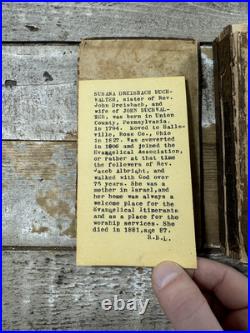 SUSANA DREISBACH BUCH-
WALTER, sister of Rev.
John Dreisbach, and
wife of JOHN BUCHWAL-
TER, was born in Union
County, Pennsylvania.
in 1794. Moved to Halls-
ville, Ross Co., Ohio
in 1827. Was converted
in 1806 and joined the
Evangelical Association,
or rather at that time
the followers of Rev.
Jacob Albright, and
walked with God over
75 years. She was a
mother in Israel,and
her home was always a
welcome place for the
Evangelical Itinerants
and as a place for the
worship services. She
died in 1881,age 87.
R.B.L.